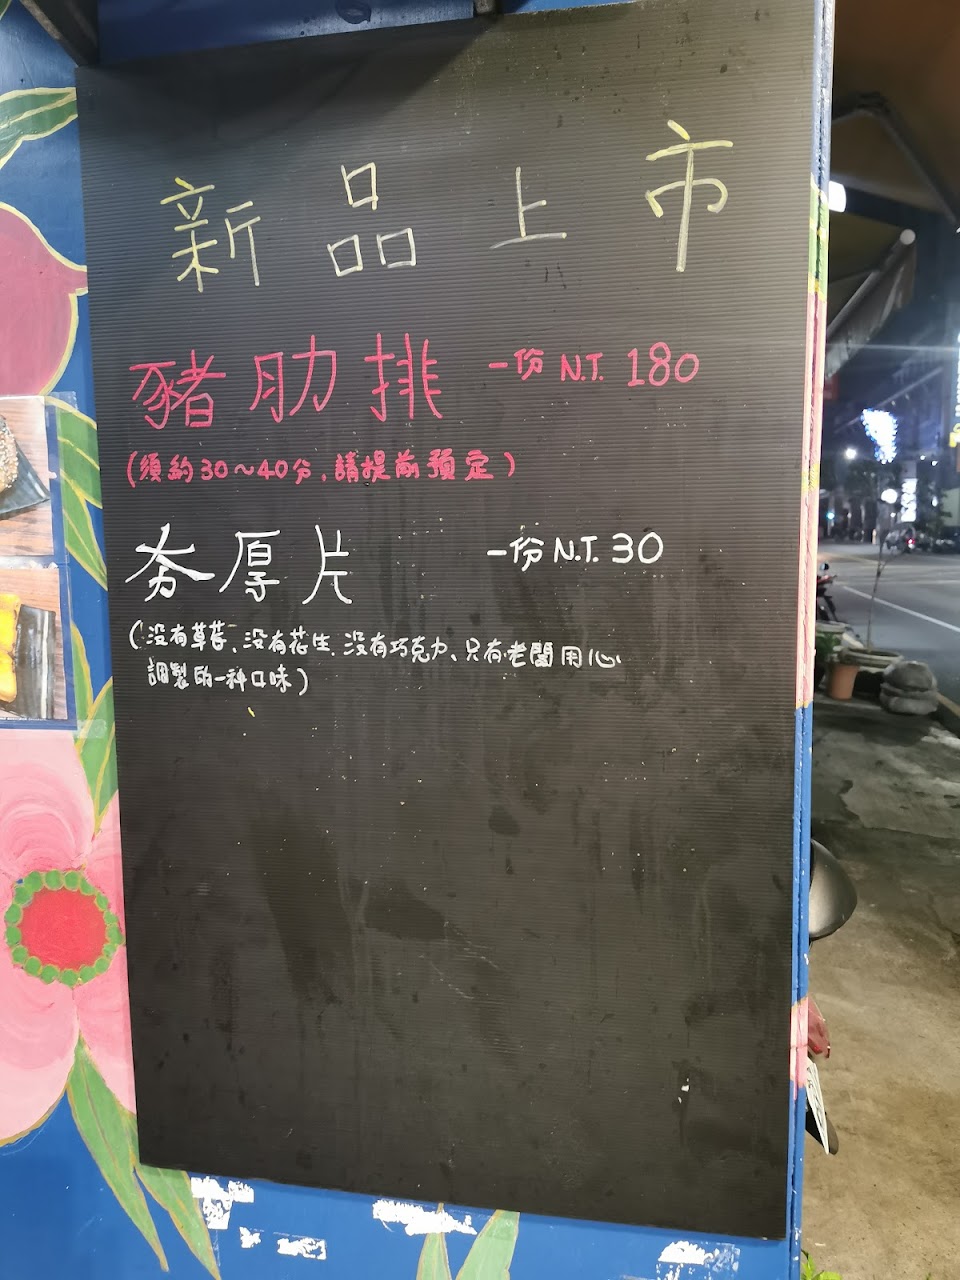 新品上市
豬肋排 一份 N.T. 180
(須約30～40分，請提前預定)
夯厚片 一份 N.T. 30
(沒有草莓、沒有花生、沒有巧克力、只有老闆用心
調製的一種口味)